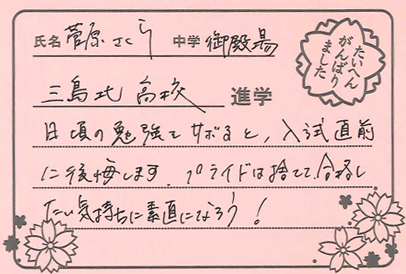 氏名 菅原さくら 中学 御殿場
たいへん
がんばり
ました
三島北 高校 進学
日頃の勉強をサボると、入試直前
に後悔します。プライドは捨てて、合格し
たい気持ちに素直になろう!